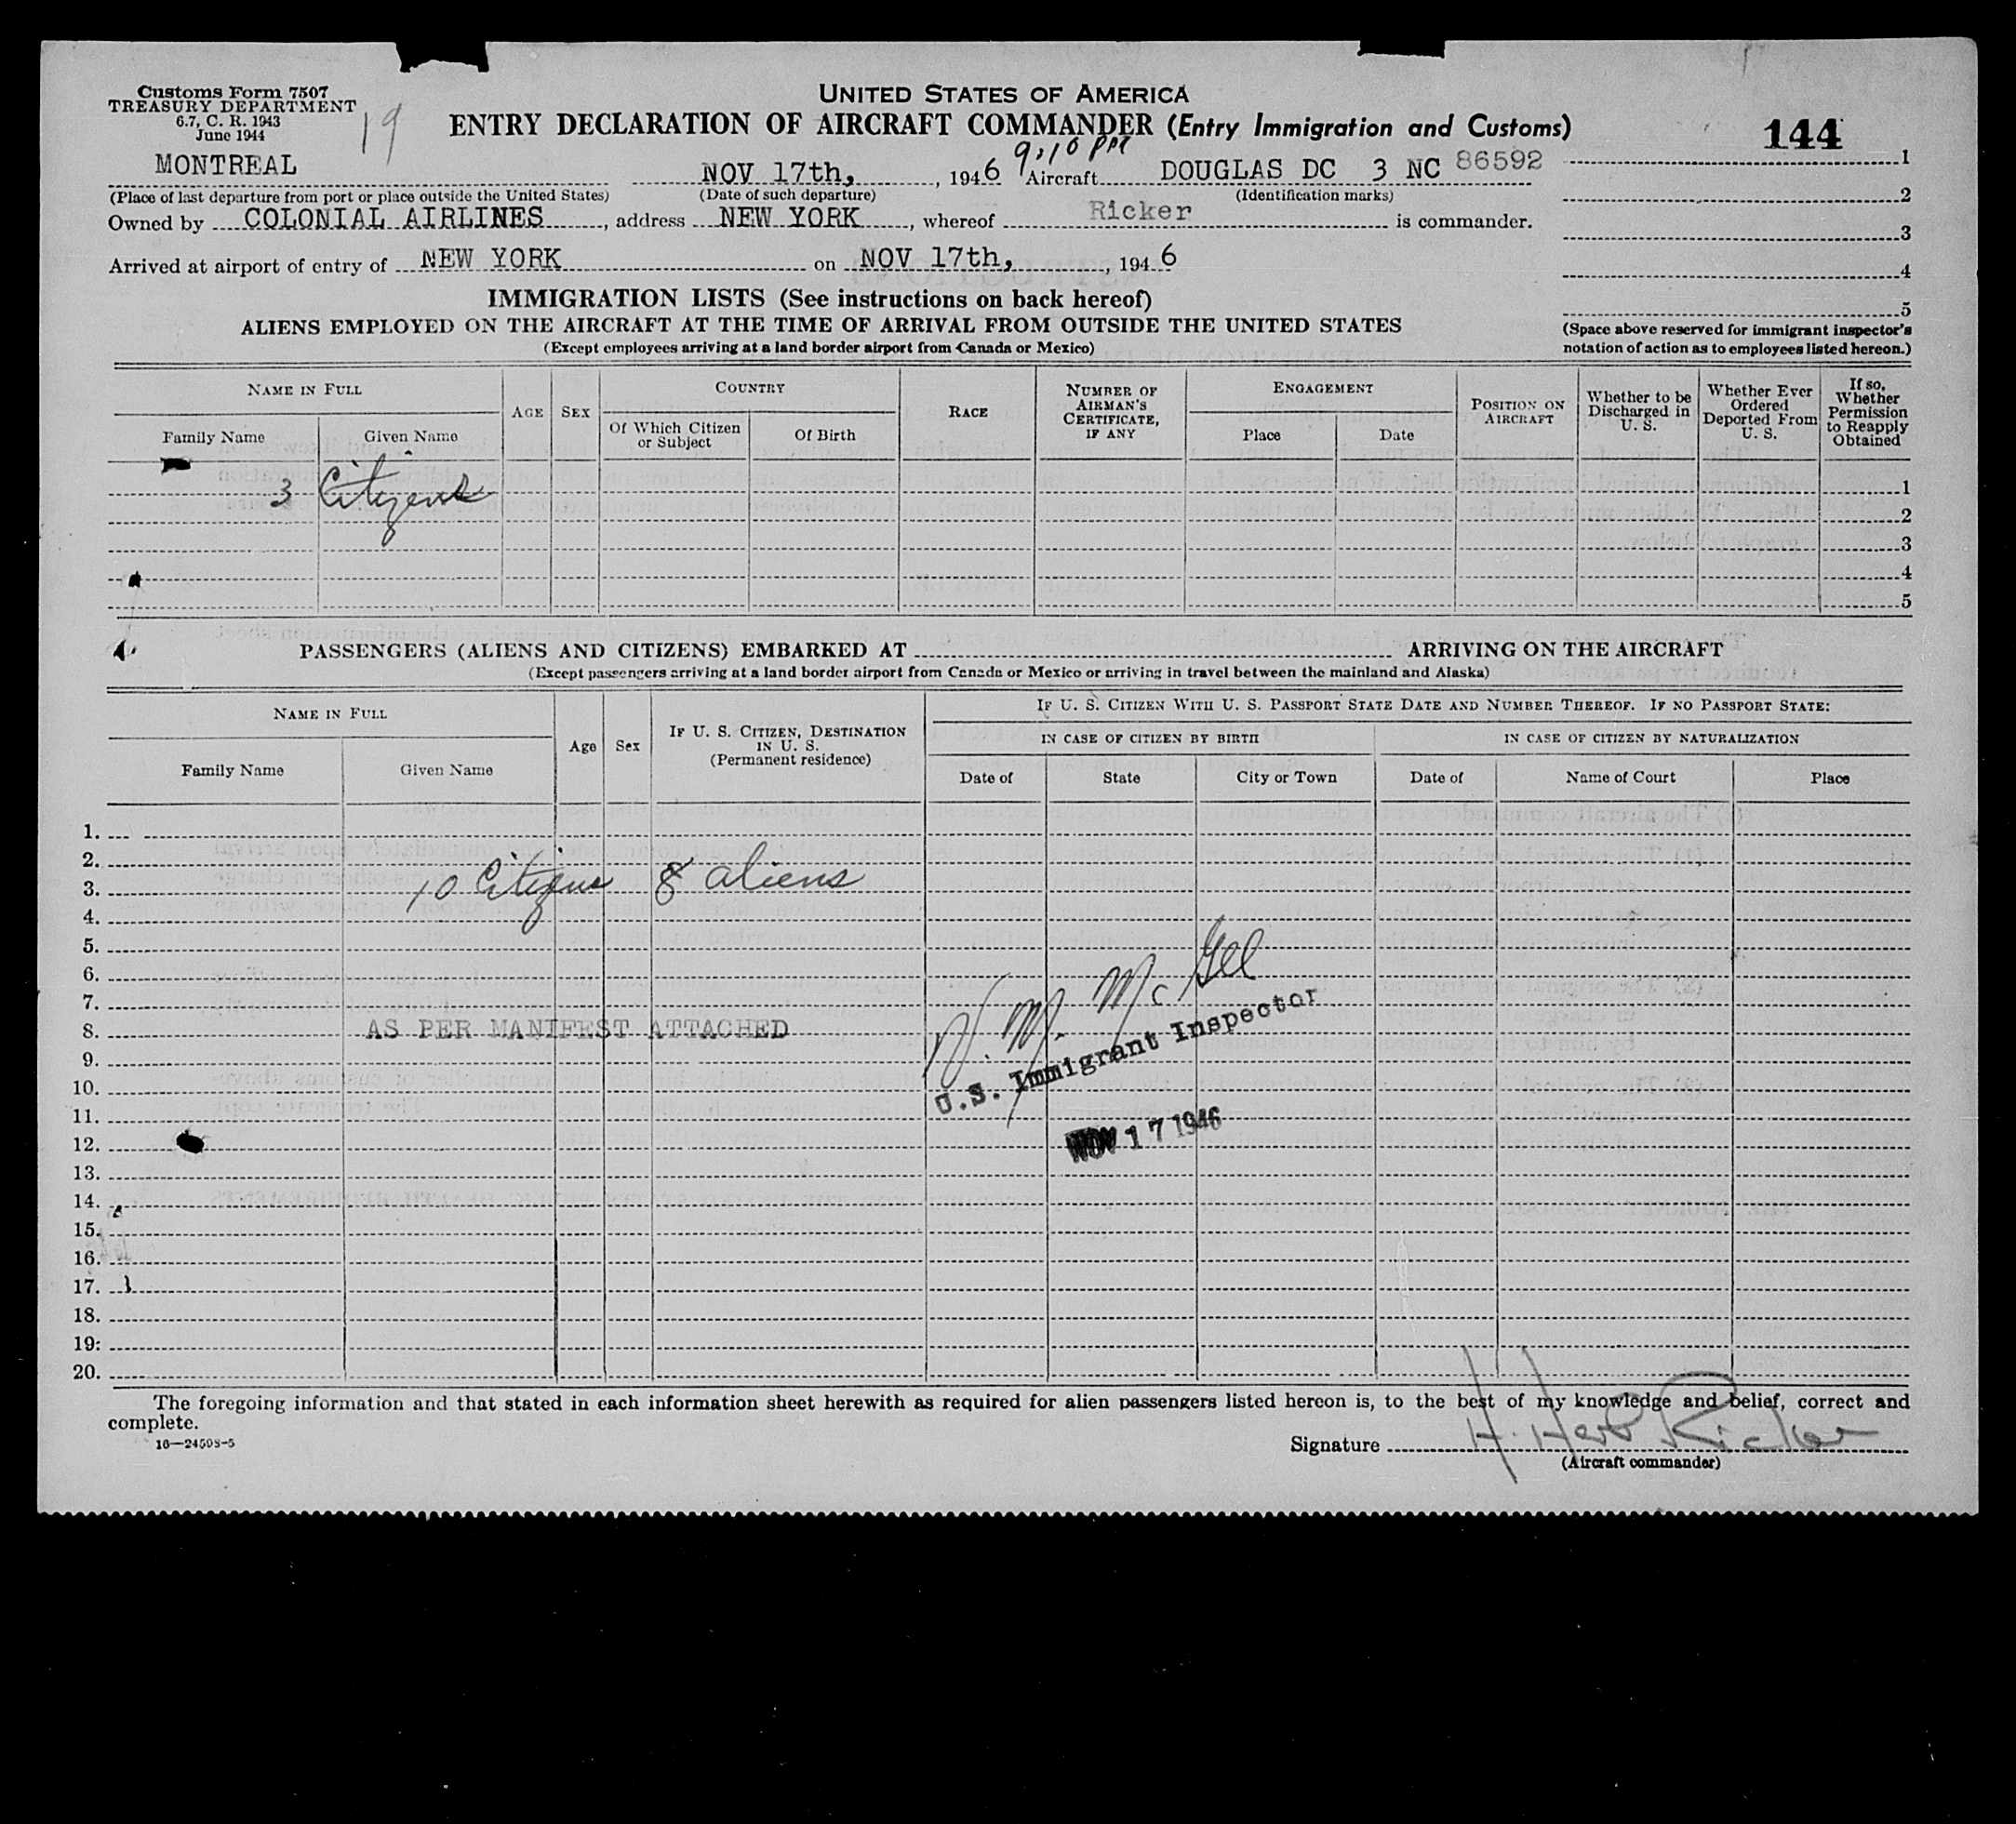 Customs Form 7507
TREASURY DEPARTMENT
6.7, C. R. 1943
June 1944
19
UNITED STATES OF AMERICA
ENTRY DECLARATION OF AIRCRAFT COMMANDER (Entry Immigration and Customs)
144
9:10 PM
MONTREAL NOV 17th, , 1946 Aircraft DOUGLAS DC 3 NC 86592 1
(Place of last departure from port or place outside the United States) (Date of such departure) (Identification marks) 2
Owned by COLONIAL AIRLINES , address NEW YORK , whereof Ricker is commander.
3
Arrived at airport of entry of NEW YORK on NOV 17th, , 1946
4
IMMIGRATION LISTS (See instructions on back hereof)
5
ALIENS EMPLOYED ON THE AIRCRAFT AT THE TIME OF ARRIVAL FROM OUTSIDE THE UNITED STATES
(Except employees arriving at a land border airport from Canada or Mexico)
(Space above reserved for immigrant inspector's
notation of action as to employees listed hereon.)
NAME IN FULL
Family Name Given Name
AGE SEX
COUNTRY
Of Which Citizen or Subject
Of Birth
RACE
NUMBER OF AIRMAN'S CERTIFICATE, IF ANY
ENGAGEMENT
Place Date
POSITION ON AIRCRAFT
Whether to be Discharged in U. S.
Whether Ever Ordered Deported From U. S.
If so, Whether Permission to Reapply Obtained
3 Citizens 1
2
3
4
5
PASSENGERS (ALIENS AND CITIZENS) EMBARKED AT ARRIVING ON THE AIRCRAFT
(Except passengers arriving at a land border airport from Canada or Mexico or arriving in travel between the mainland and Alaska)
NAME IN FULL
Family Name Given Name
Age Sex
IF U. S. CITIZEN, DESTINATION IN U. S. (Permanent residence)
IF U. S. CITIZEN WITH U. S. PASSPORT STATE DATE AND NUMBER THEREOF. IF NO PASSPORT STATE:
IN CASE OF CITIZEN BY BIRTH IN CASE OF CITIZEN BY NATURALIZATION
Date of State City or Town Date of Name of Court Place
1.
2.
3. 10 Citizens 8 aliens
4.
5.
6.
7.
8. AS PER MANIFEST ATTACHED
9.
10.
11.
12.
13.
14.
15.
16.
17.
18.
19.
20.
McGee
U.S. Immigrant Inspector
NOV 17 1946
The foregoing information and that stated in each information sheet herewith as required for alien passengers listed hereon is, to the best of my knowledge and belief, correct and
complete.
16—24598-5
Signature H. Herb Ricker
(Aircraft commander)